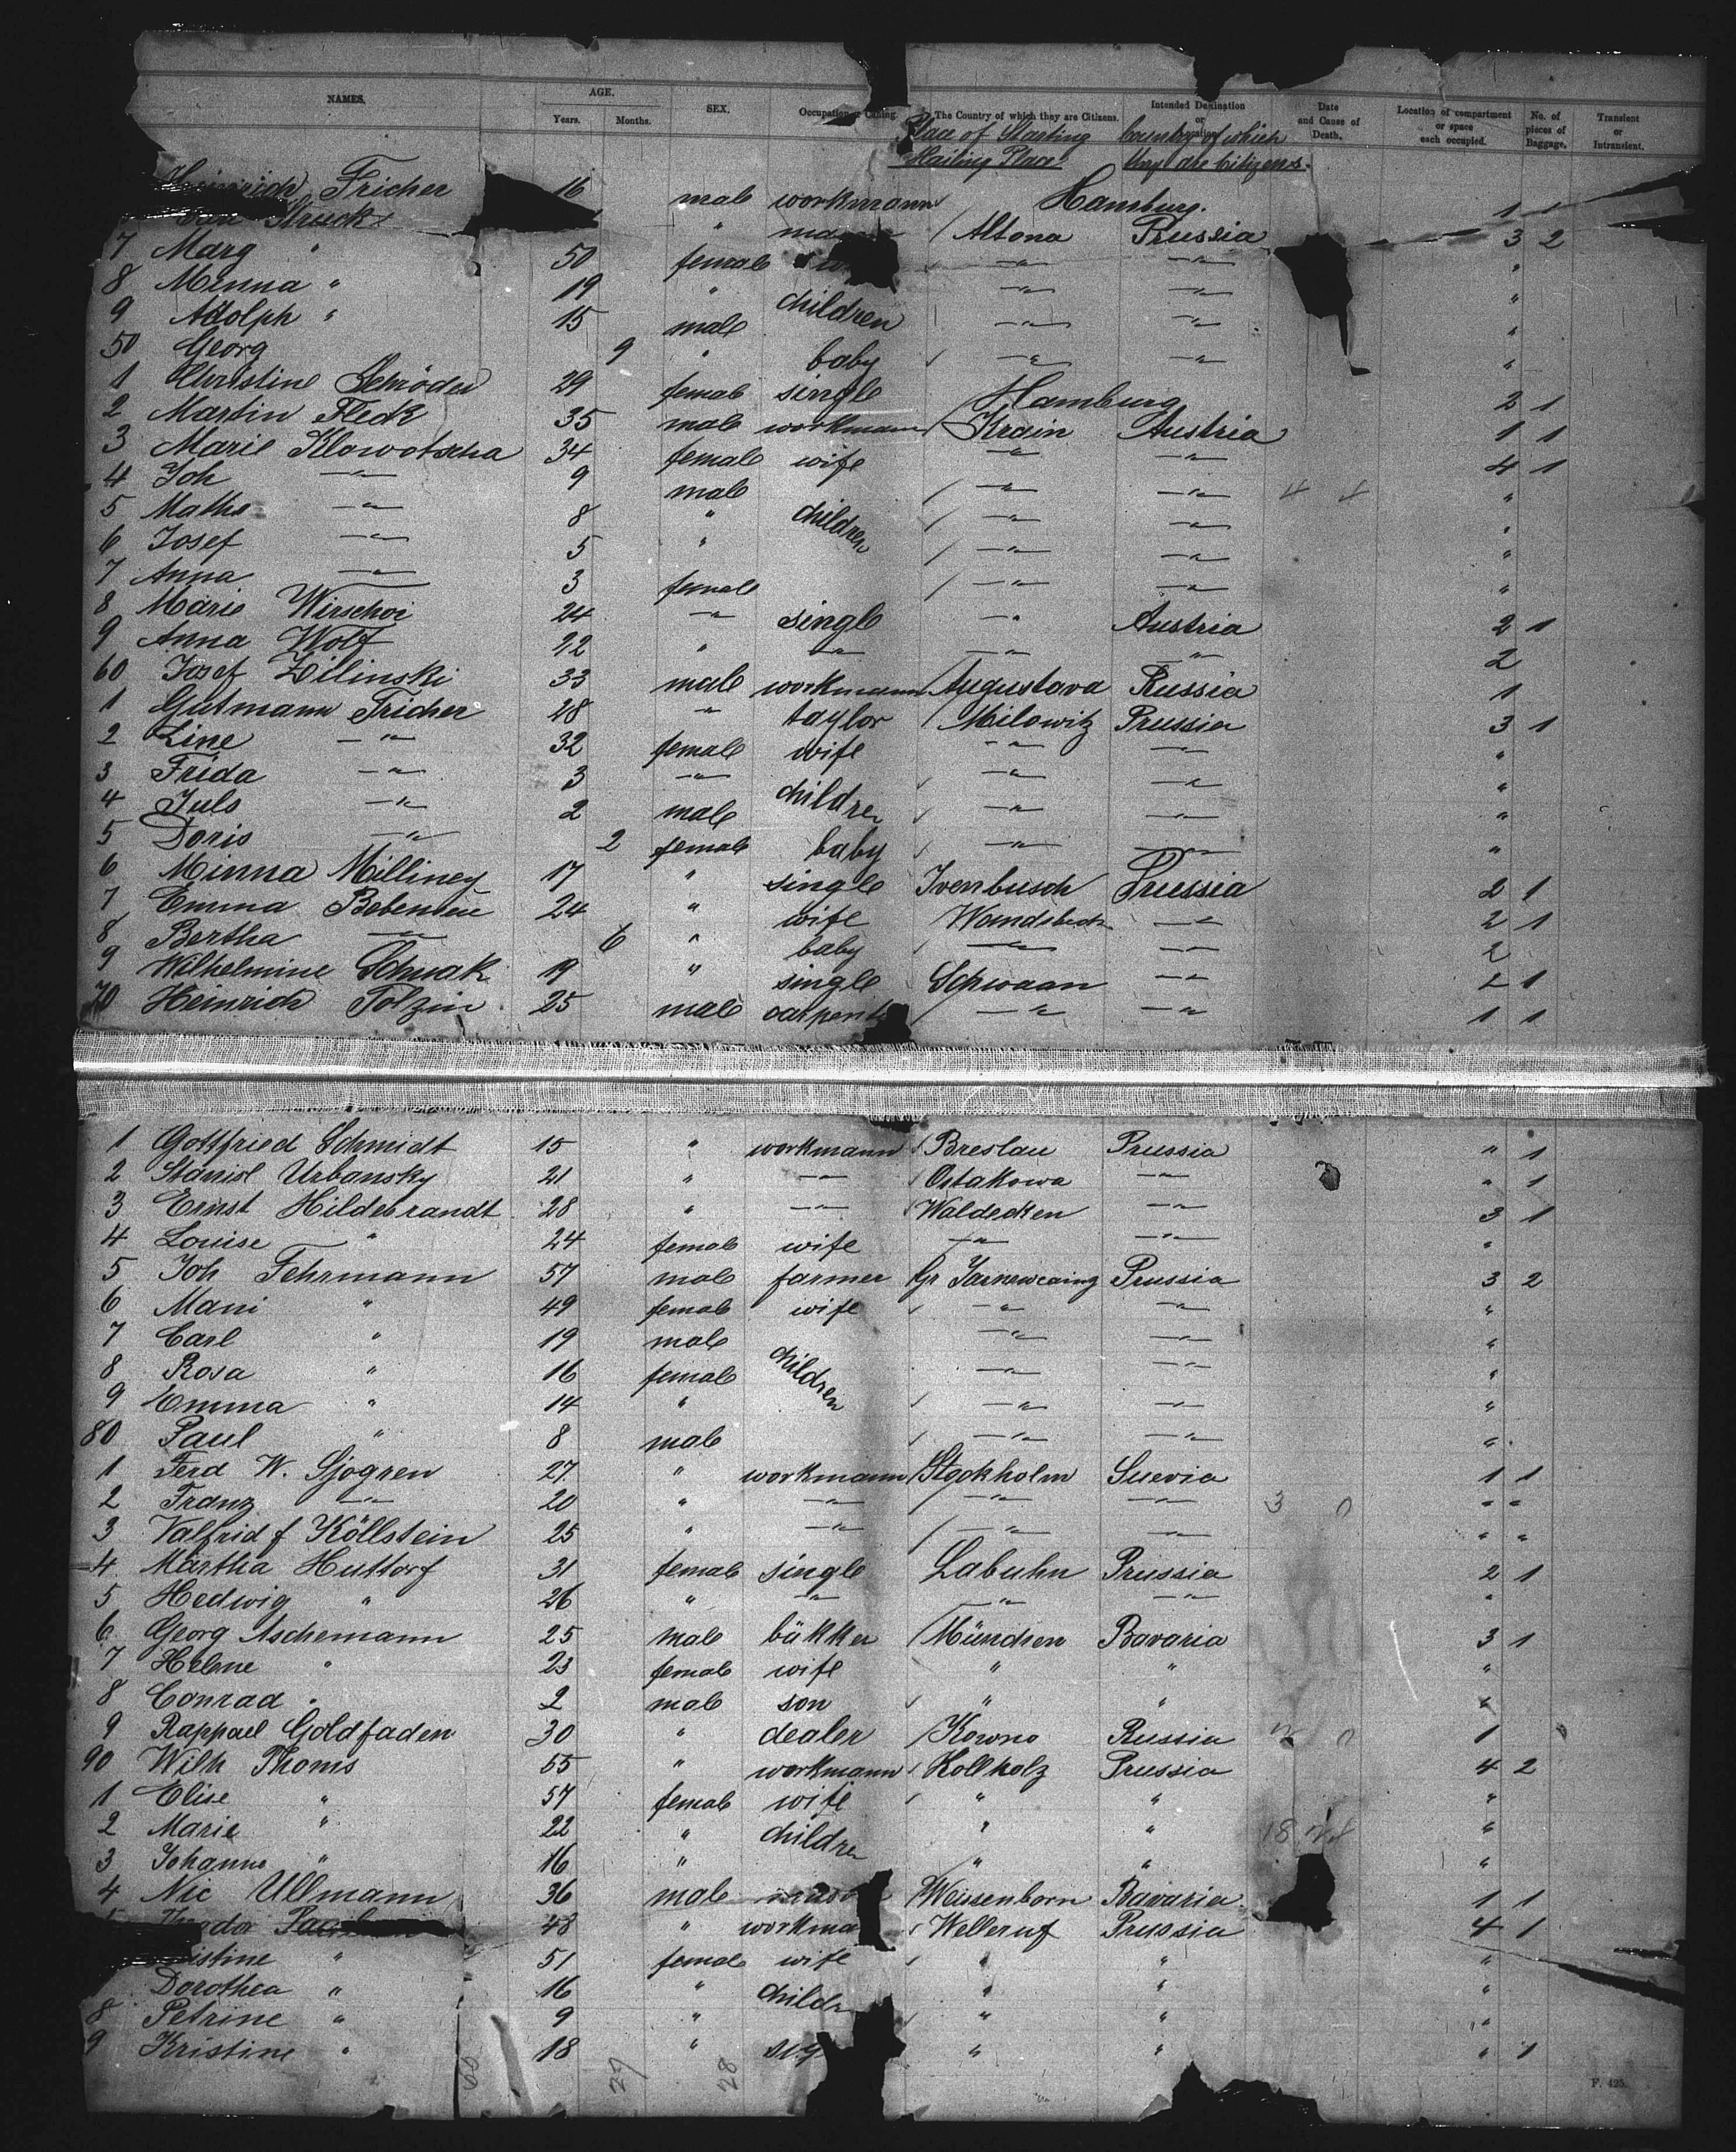 NAMES. AGE. Years. Months. SEX. Occupation or Calling. The Country of which they are Citizens. Intended Destination or Date and Cause of Death. Location of compartment or space each occupied. No. of pieces of Baggage. Transient or Intransient.
Place of Starting Country of which
Mailing Place they are Citizens.
Heinrich Fricher 16 male workmann Hamburg. 1 1
Struck " Altona Prussia 3 2
7 Marg " 50 female —"— —"— "
8 Minna " 19 " children —"— —"— "
9 Adolph " 15 male —"— —"— "
50 Georg 9 " baby —"— —"— "
1 Christine Schröder 29 female single Hamburg 2 1
2 Martin Fleck 35 male workmann Krain Austria 1 1
3 Marie Klowotscha 34 female wife —"— —"— 4 1
4 Joh —"— 9 male —"— —"— 4 4 "
5 Maths —"— 8 " children —"— —"— "
6 Josef —"— 5 " —"— —"— "
7 Anna —"— 3 female —"— —"— "
8 Marie Wirschoi 24 —"— single —"— Austria 2 1
9 Anna Wolf 22 " —"— —"— —"— 2
60 Josef Zilinski 33 male workmann Augustava Russia 1
1 Gutmann Fricher 28 —"— taylor Milowitz Prussia 3 1
2 Line —"— 32 female wife —"— —"— "
3 Frida —"— 3 —"— children —"— —"— "
4 Juls —"— 2 male —"— —"— "
5 Doris —"— 2 female baby —"— —"— "
6 Minna Milliney 17 " single Ivenbusch Prussia 2 1
7 Emma 24 " wife Wandsbeck —"— 2 1
8 Bertha —"— 6 " baby —"— —"— 2
9 Wilhelmine Schnak 19 " single Schwaan —"— 2 1
70 Heinrich Tolzin 25 male carpent —"— —"— 1 1
1 Gottfried Schmidt 15 " workmann Breslau Prussia " 1
2 Stanisl Urbansky 21 " —"— Ostakowa —"— " 1
3 Ernst Hildebrandt 28 " —"— Waldecken —"— 3 1
4 Louise " 24 female wife —"— —"— "
5 Joh Fehrmann 57 male farmer Gr Prussia 3 2
6 Mani " 49 female wife —"— —"— "
7 Carl " 19 male —"— —"— "
8 Rosa " 16 female children —"— —"— "
9 Emma " 14 " —"— —"— "
80 Paul " 8 male —"— —"— "
1 Ferd W. Sjogren 27 " workmann Stockholm Suevia 1 1
2 Franz —"— 20 " —"— —"— —"— 3 0 " "
3 Valfrid f Köllstein 25 " —"— —"— —"— " "
4 Martha Huttorf 31 female single Labuhn Prussia 2 1
5 Hedwig " 26 " —"— —"— —"— "
6 Georg Aschemann 25 male bäkker München Bavaria 3 1
7 Helene " 23 female wife " " "
8 Conrad " 2 male son " " "
9 Rappael Goldfaden 30 " dealer Kowno Russia 0 1
90 Wilh Thoms 55 " workmann Kollholz Prussia 4 2
1 Elise " 57 female wife " " "
2 Marie " 22 " children " " 18 "
3 Johanne " 16 " " " "
4 Nic Ullmann 36 male Weissenborn Bavaria 1 1
48 " workma Welleruf Prussia 4 1
istine " 51 female wife " " "
Dorothea " 16 " childr " " "
8 Petrine " 9 " " " "
9 Kristine " 18 " " " " 1
27 28
F. 425.